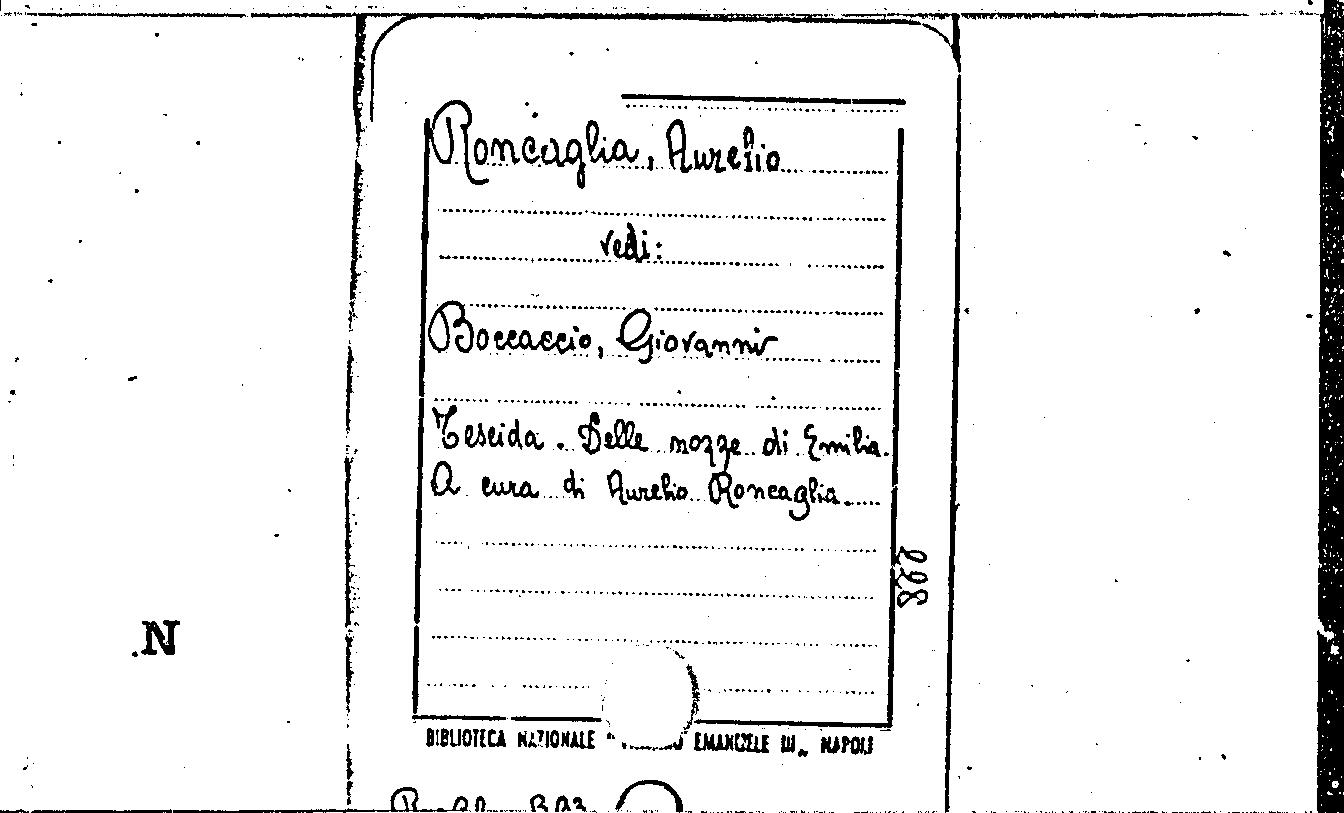 Roncaglia, Aurelio
vedi:
Boccaccio, Giovanni
Teseida. Delle nozze di Emilia.
A cura di Aurelio Roncaglia.
228
N.
BIBLIOTECA NAZIONALE " EMANUELE III„ NAPOLI